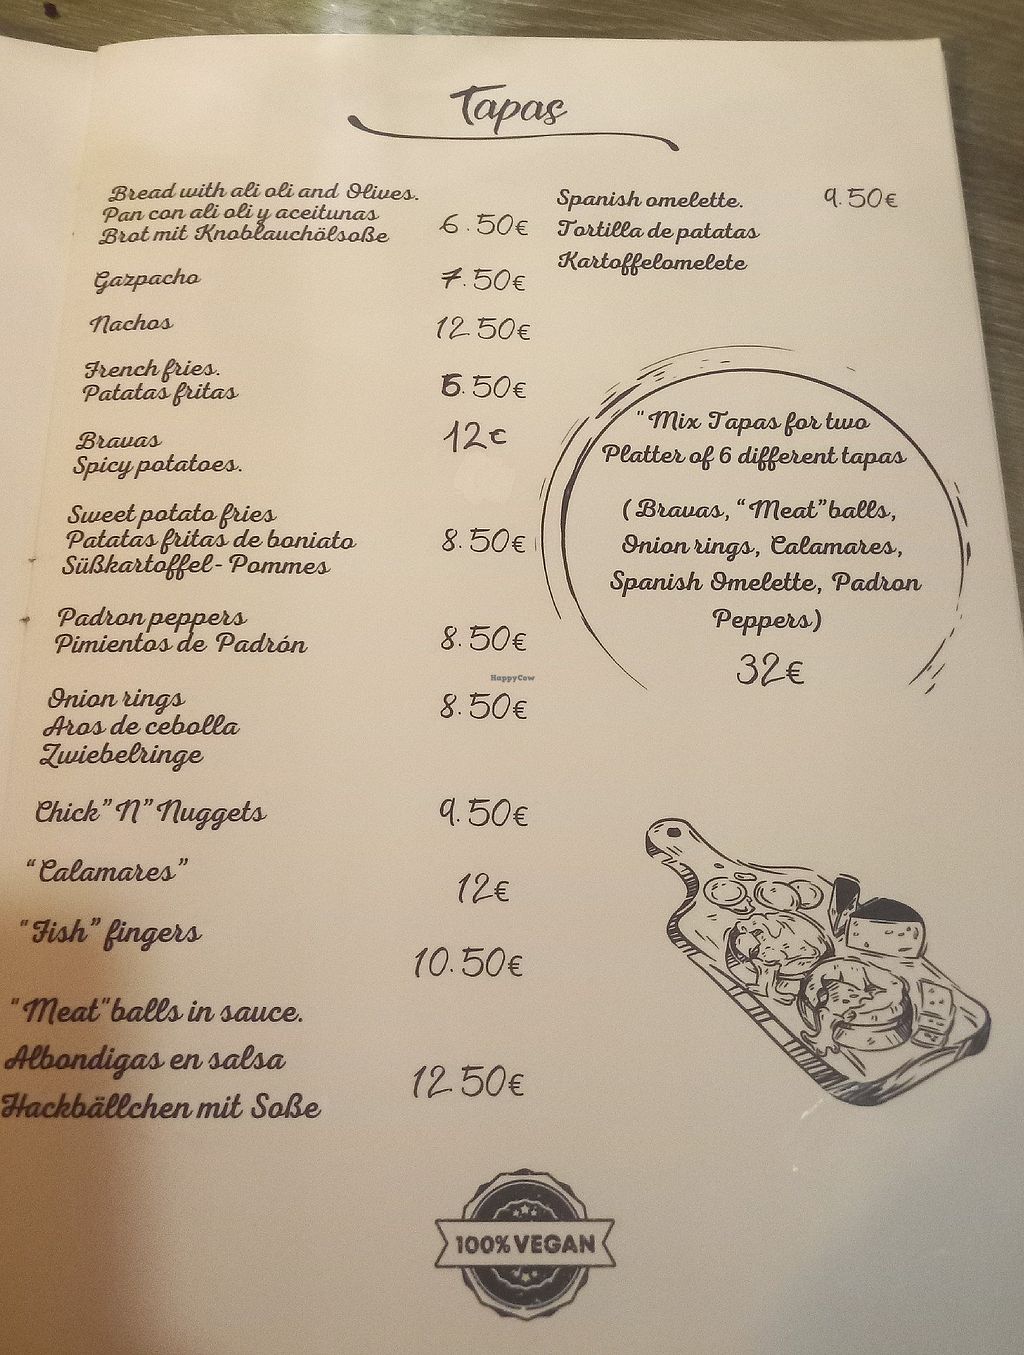 Tapas
Bread with ali oli and Olives.
Pan con ali oli y aceitunas
Brot mit Knoblauchölsoße
6.50€
Gazpacho
7.50€
Nachos
12.50€
French fries.
Patatas fritas
6.50€
Bravas
Spicy potatoes.
12€
Sweet potato fries
Patatas fritas de boniato
Süßkartoffel- Pommes
8.50€
Padron peppers
Pimientos de Padrón
8.50€
Onion rings
Aros de cebolla
Zwiebelringe
8.50€
Chick"N"Nuggets
9.50€
"Calamares"
12€
"Fish" fingers
10.50€
"Meat"balls in sauce.
Albondigas en salsa
Hackbällchen mit Soße
12.50€
Spanish omelette.
Tortilla de patatas
Kartoffelomelete
9.50€
"Mix Tapas for two
Platter of 6 different tapas
(Bravas, "Meat"balls,
Onion rings, Calamares,
Spanish Omelette, Padron
Peppers)
32€
HappyCow
100% VEGAN